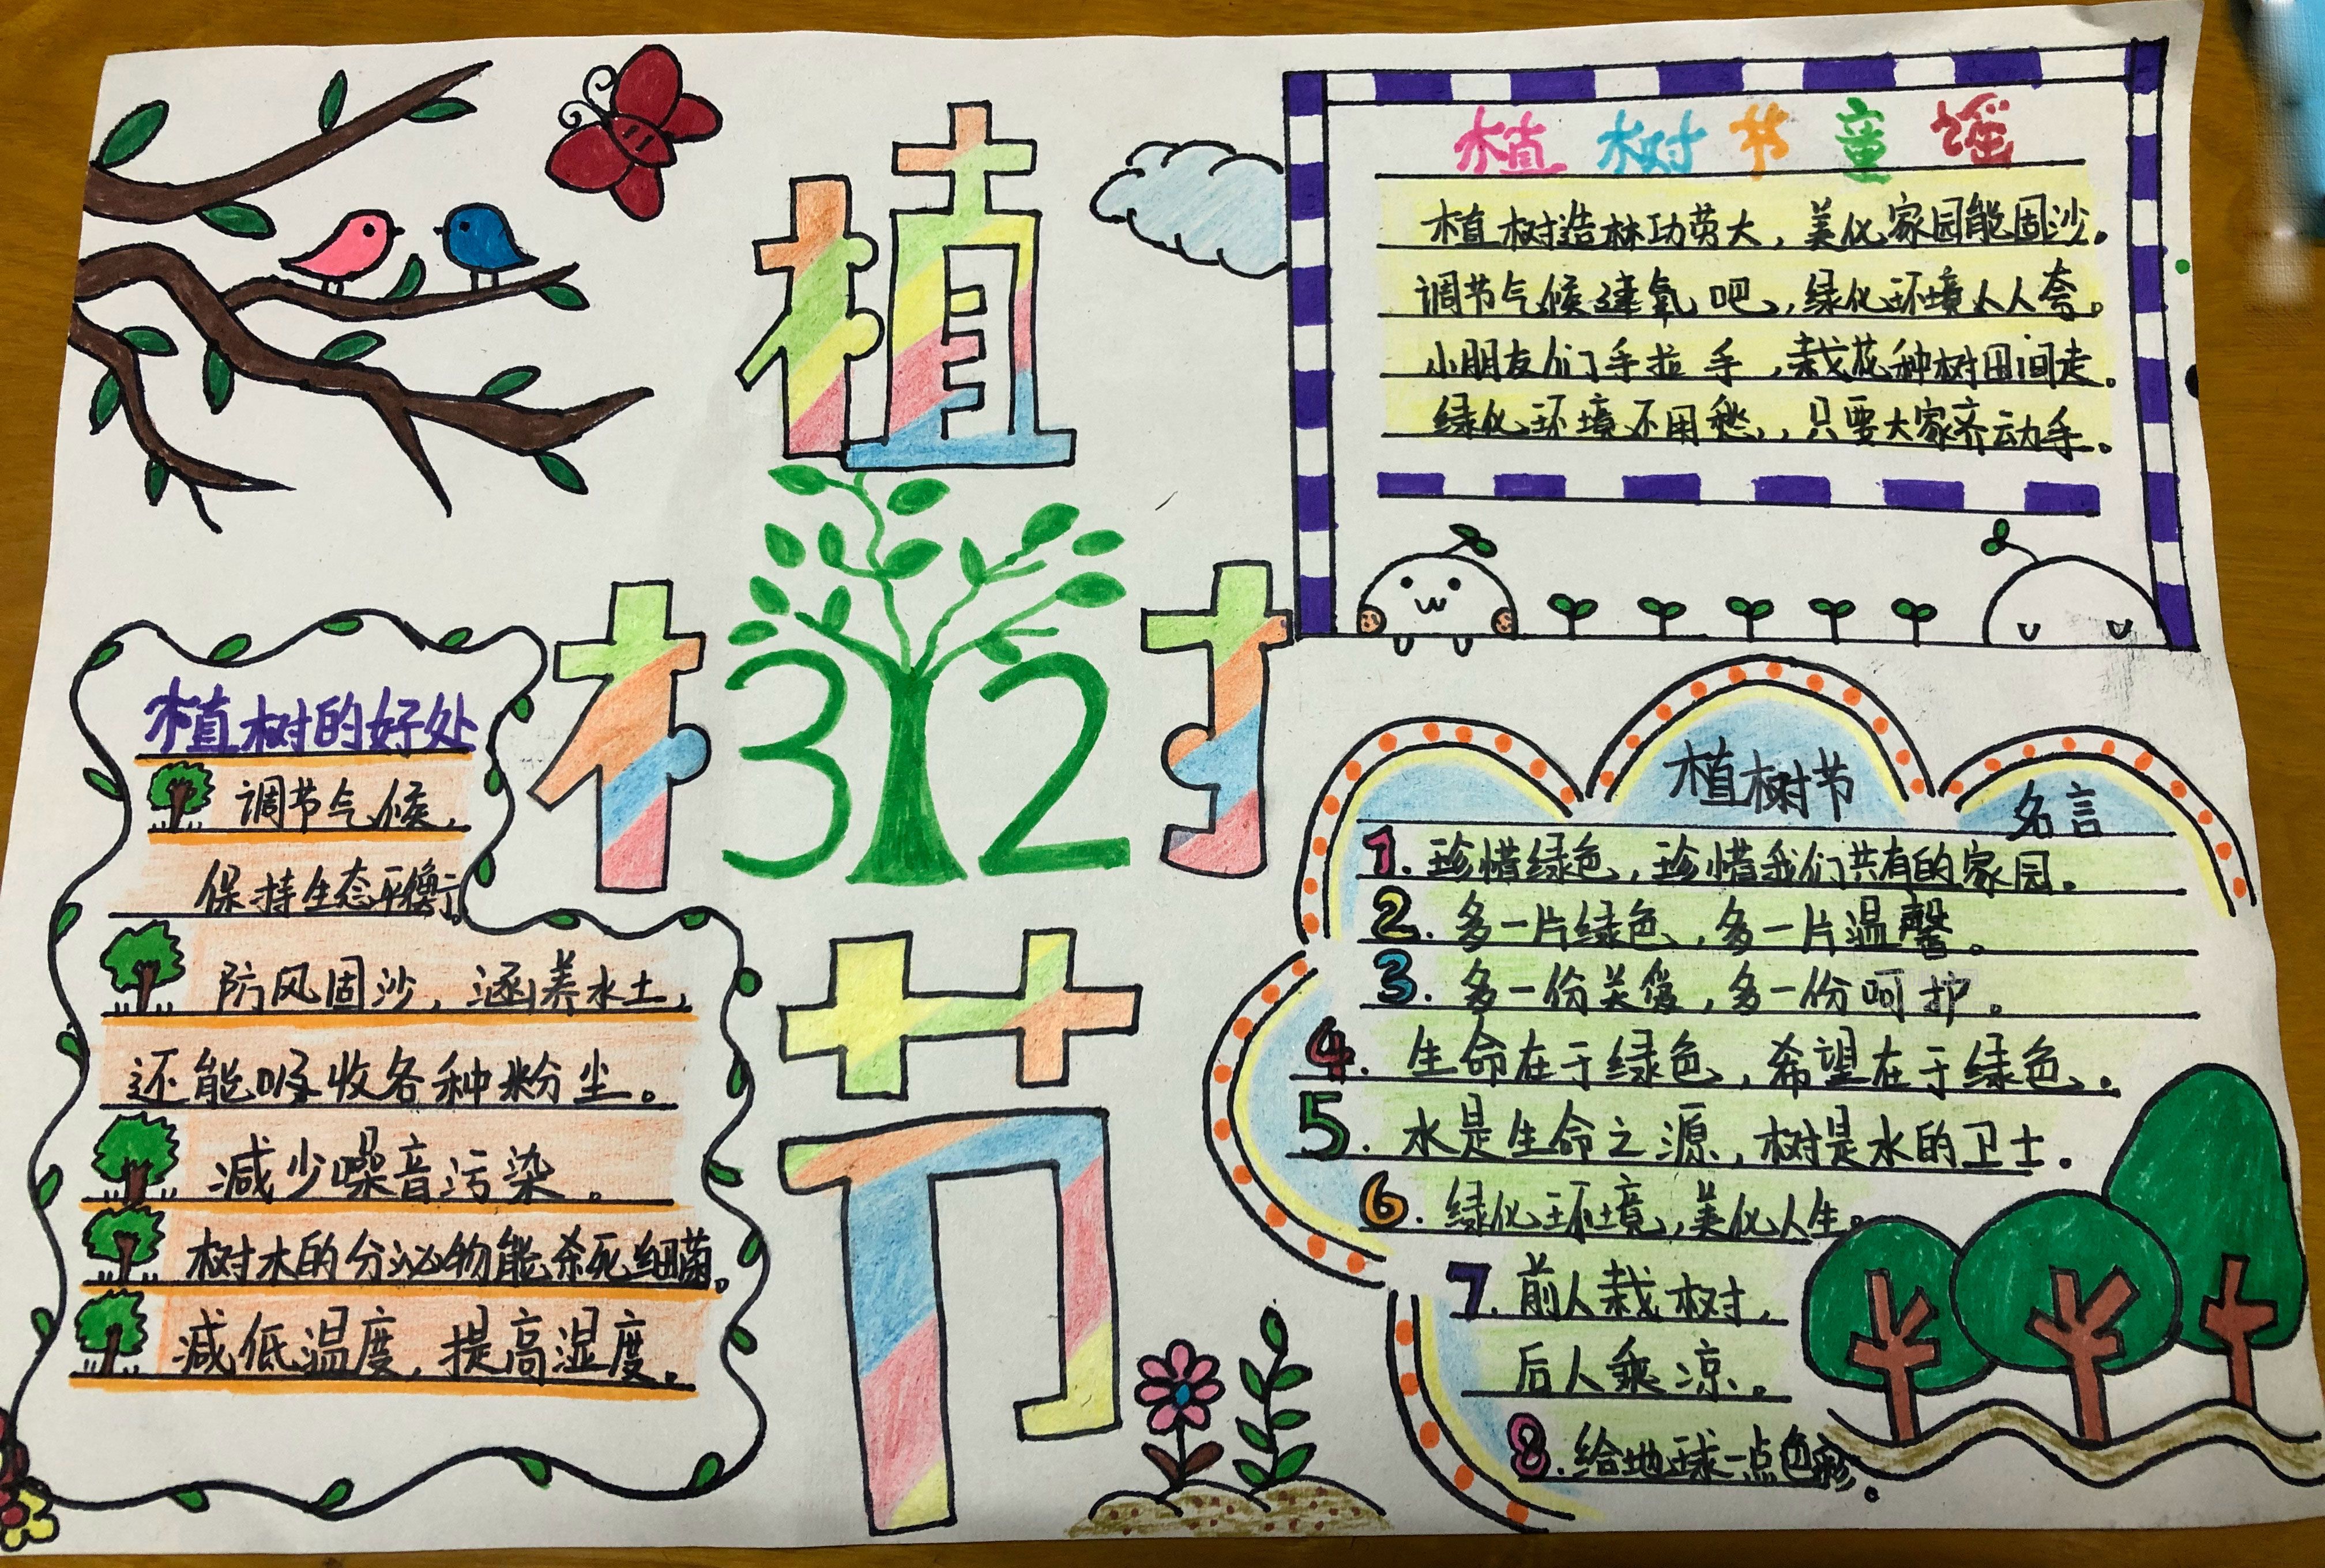 植
树
312
节
植树节童谣
植树造林功劳大，美化家园能固沙。
调节气候建氧吧，绿化环境人人夸。
小朋友们手拉手，栽花种树田间走。
绿化环境不用愁，只要大家齐动手。
植树的好处
调节气候，
保持生态平衡。
防风固沙，涵养水土，
还能吸收各种粉尘。
减少噪音污染。
树木的分泌物能杀死细菌。
减低温度，提高湿度。
植树节
名言
1. 珍惜绿色，珍惜我们共有的家园。
2. 多一片绿色，多一片温馨。
3. 多一份关爱，多一份呵护。
4. 生命在于绿色，希望在于绿色。
5. 水是生命之源，树是水的卫士。
6. 绿化环境，美化人生。
7. 前人栽树，
后人乘凉。
8. 给地球一点色彩。